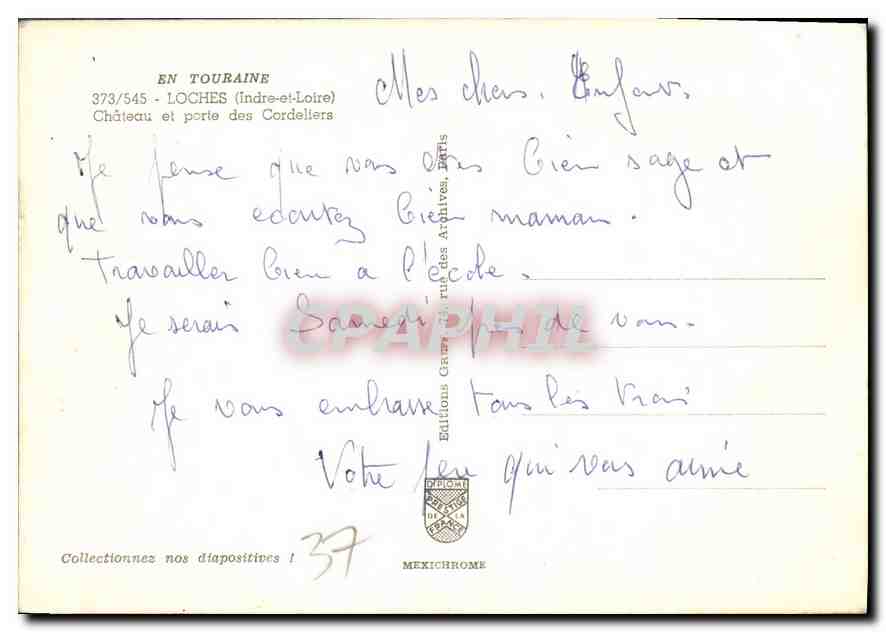 EN TOURAINE
373/545 - LOCHES (Indre-et-Loire)
Château et porte des Cordeliers
Mes chers. Enfants
Je pense que vous êtes bien sage et
que vous écoutez bien maman.
Travailler bien a l'école.
Je serais Samedi près de vous.
Je vous embrasse tous les trois
Votre père qui vous aime
Editions GABY, 74, rue des Archives, Paris
CPAPHIL
DIPLOME
PRESTIGE
DE LA
FRANCE
Collectionnez nos diapositives !
37
MEXICHROME